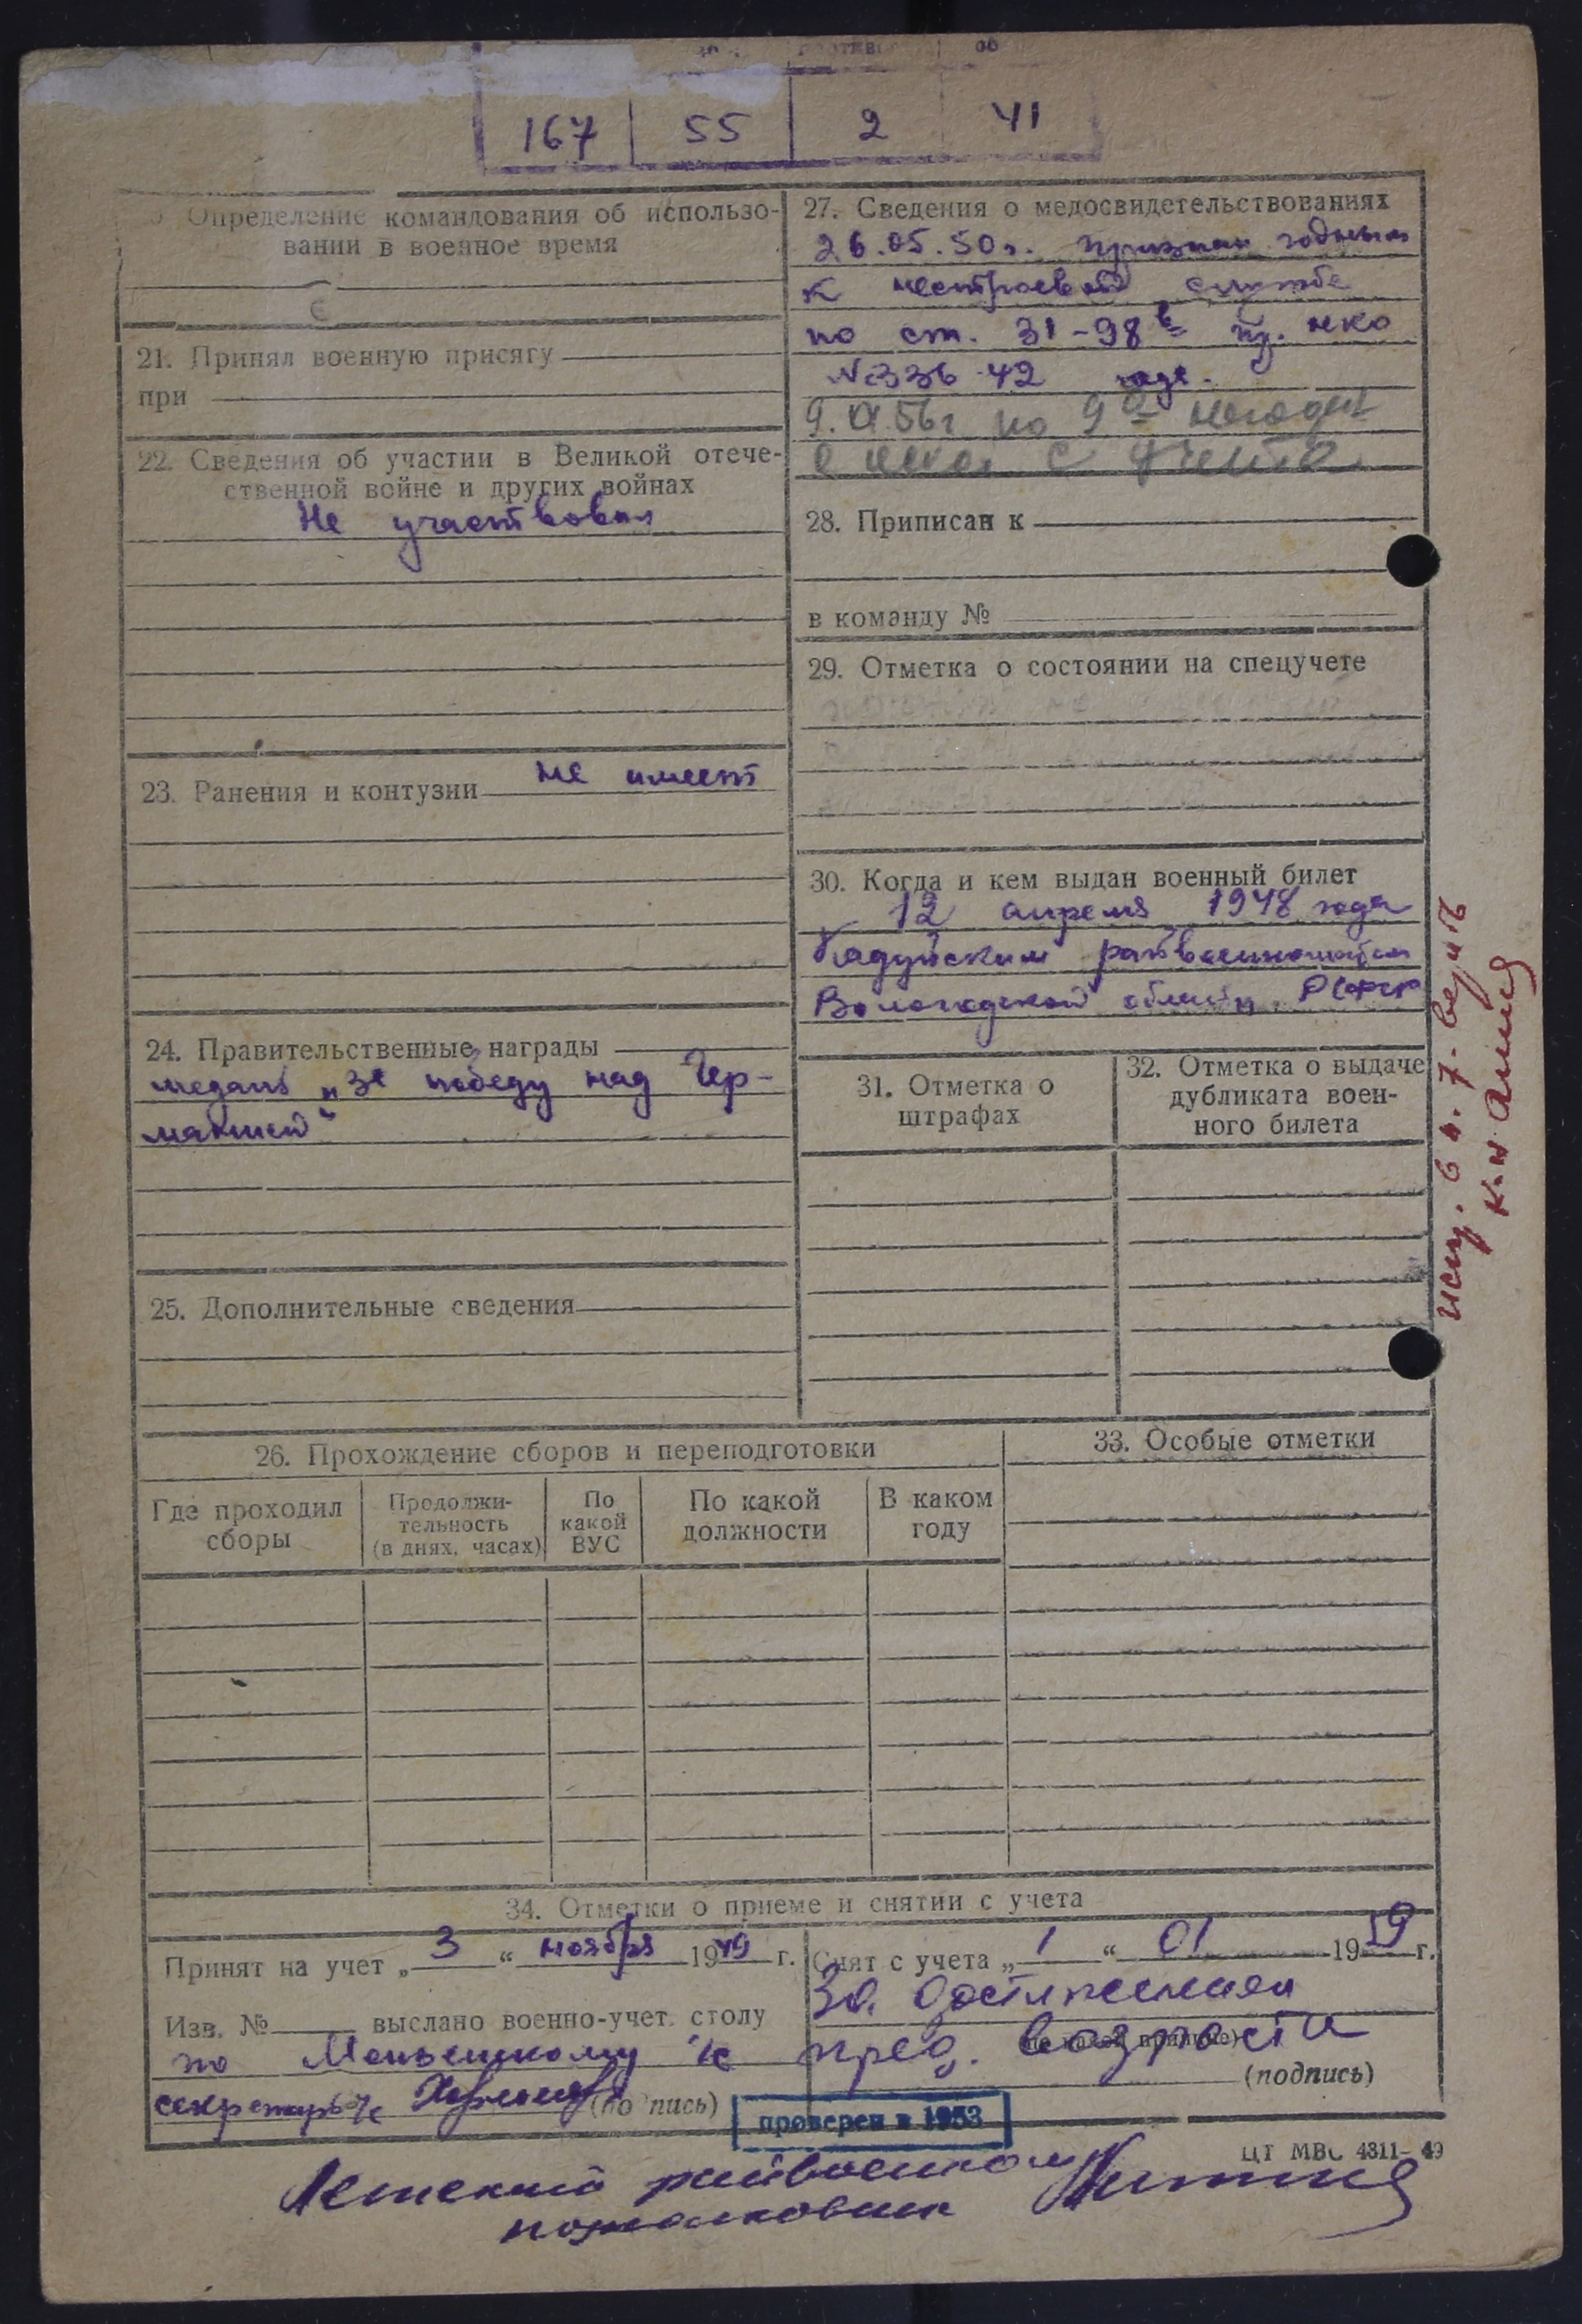 167 55 2 41
Определение командования об использо-
вании в военное время
21. Принял военную присягу
при
22. Сведения об участии в Великой отече-
ственной войне и других войнах
Не участвовал
23. Ранения и контузии не имеет
24. Правительственные награды
медаль „За победу над Гер-
манией"
25. Дополнительные сведения
27. Сведения о медосвидетельствованиях
26.05.50г. признан годным
к нестроевой службе
по ст. 31-98в пр. нко
№336-42 года.
9. 56г по 9а негоден
с учета
28. Приписан к
в команду №
29. Отметка о состоянии на спецучете
30. Когда и кем выдан военный билет
12 апреля 1948 года
Кадуйским райвоенкоматом
Вологодской области РСФСР
31. Отметка о
штрафах
32. Отметка о выдаче
дубликата воен-
ного билета
26. Прохождение сборов и переподготовки
Где проходил
сборы
Продолжи-
тельность
(в днях, часах)
По
какой
ВУС
По какой
должности
В каком
году
33. Особые отметки
34. Отметки о приеме и снятии с учета
Принят на учет „ 3 “ ноября 1949 г.
Изв. № выслано военно-учет. столу
по
секретарь (подпись)
Снят с учета „ 1 “ 01 1959 г.
За достижением
пред. возраста
(подпись)
проверен в 1953
ЦТ МВС 4311-49
райвоенком
подполковник